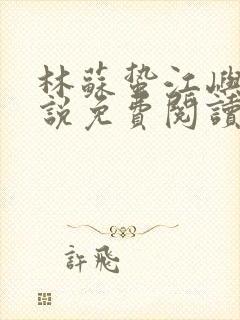 林蘇蟄江嶼
說免費閱讀
許飛